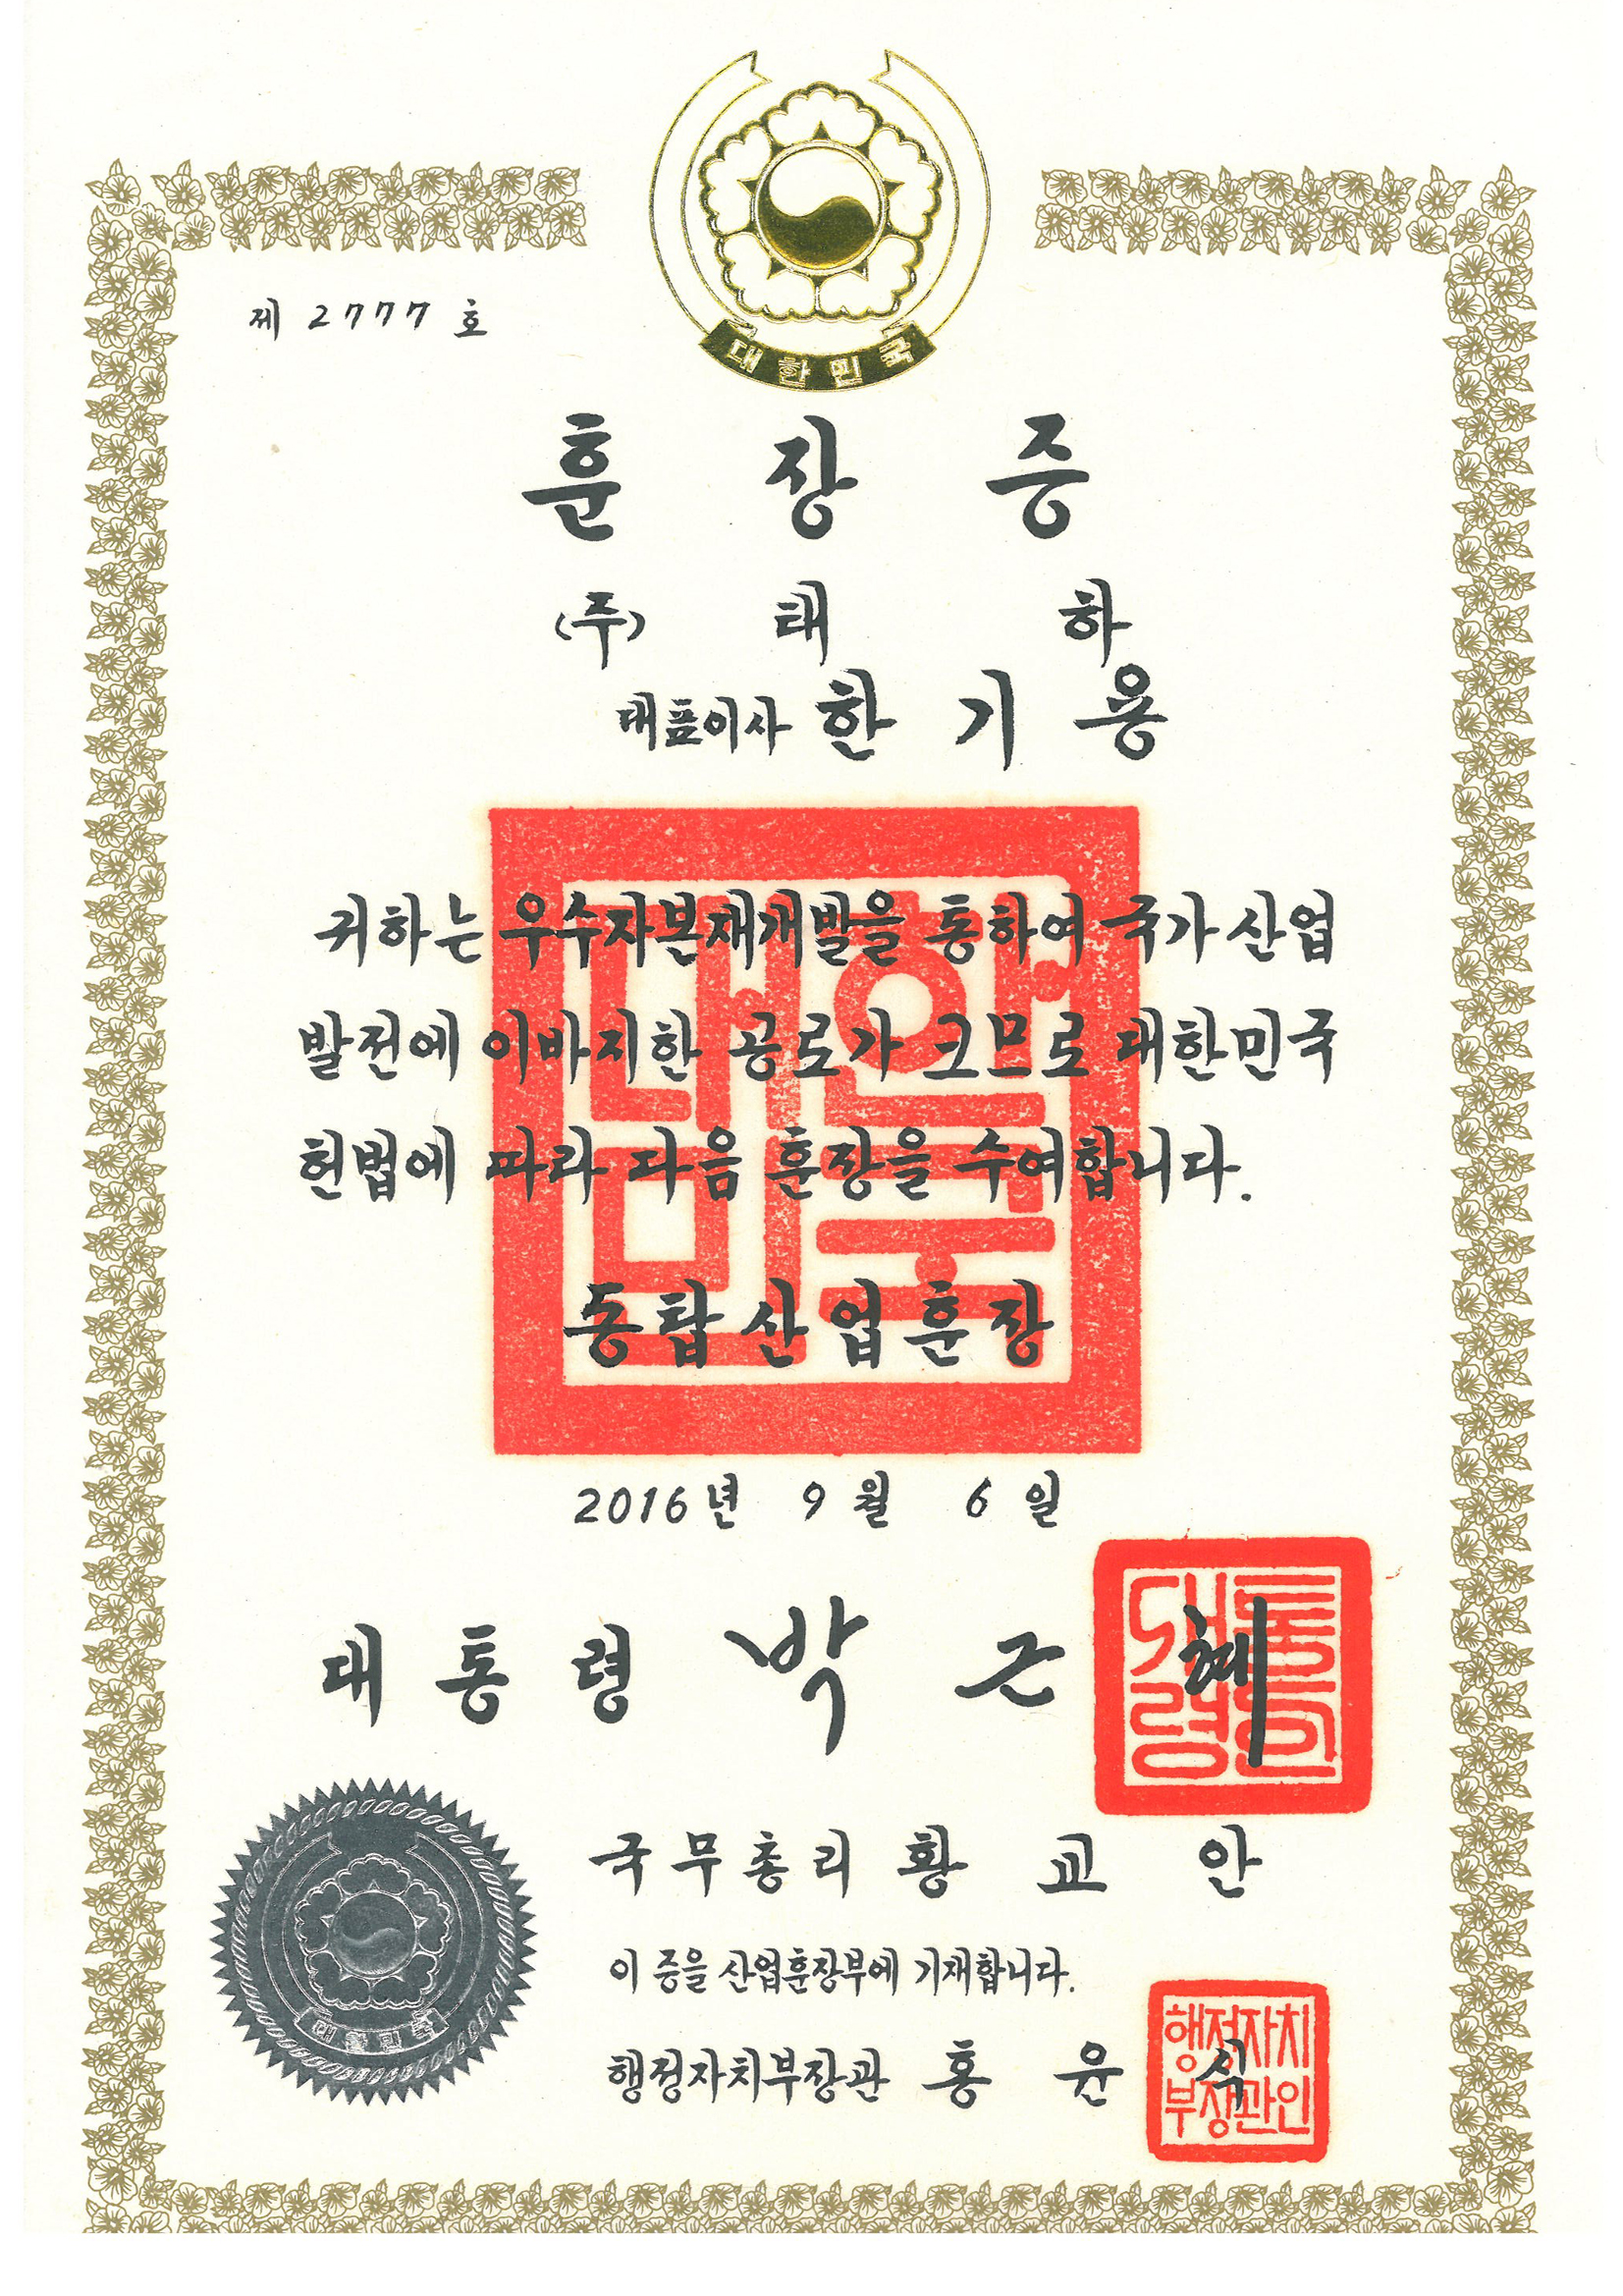 대한민국
제 2777 호
훈장증
(주) 태하
대표이사 한기용
귀하는 우수자본재개발을 통하여 국가산업
발전에 이바지한 공로가 크므로 대한민국
헌법에 따라 다음 훈장을 수여합니다.
대한민국
동탑산업훈장
2016년 9월 6일
대통령 박근혜
대통령인
국무총리 황교안
이 증을 산업훈장부에 기재합니다.
대한민국
행정자치부장관 홍윤식
행정자치
부장관인